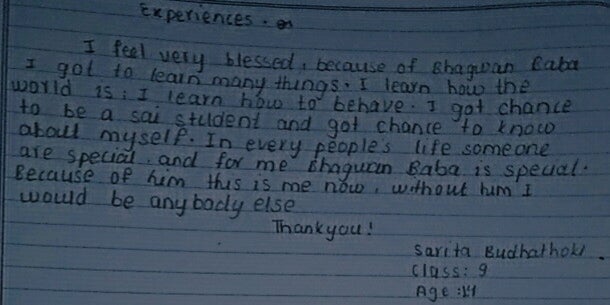 Experiences.
I feel very blessed, because of Bhagwan Baba
I got to learn many things. I learn how the
world is. I learn how to behave. I got chance
to be a sai student and got chance to know
about myself. In every people's life someone
are special, and for me Bhagwan Baba is special.
Because of him this is me now, without him I
would be anybody else
Thankyou!
Sarita Budhathoki
Class: 9
Age: 14